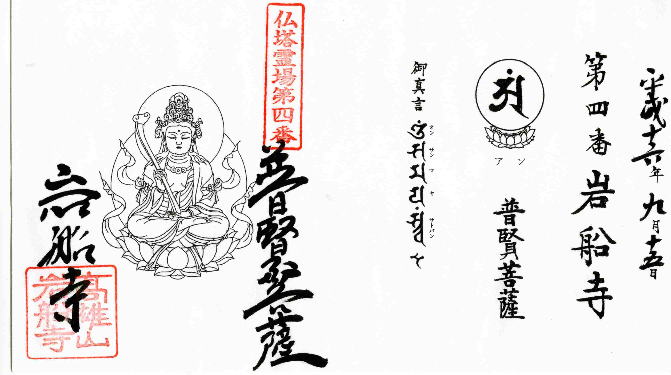 平成十六年 九月十五日
第四番 岩船寺
アン
普賢菩薩
御真言
サトバン
仏塔霊場第四番
普賢菩薩
岩船寺
高雄山
岩船寺